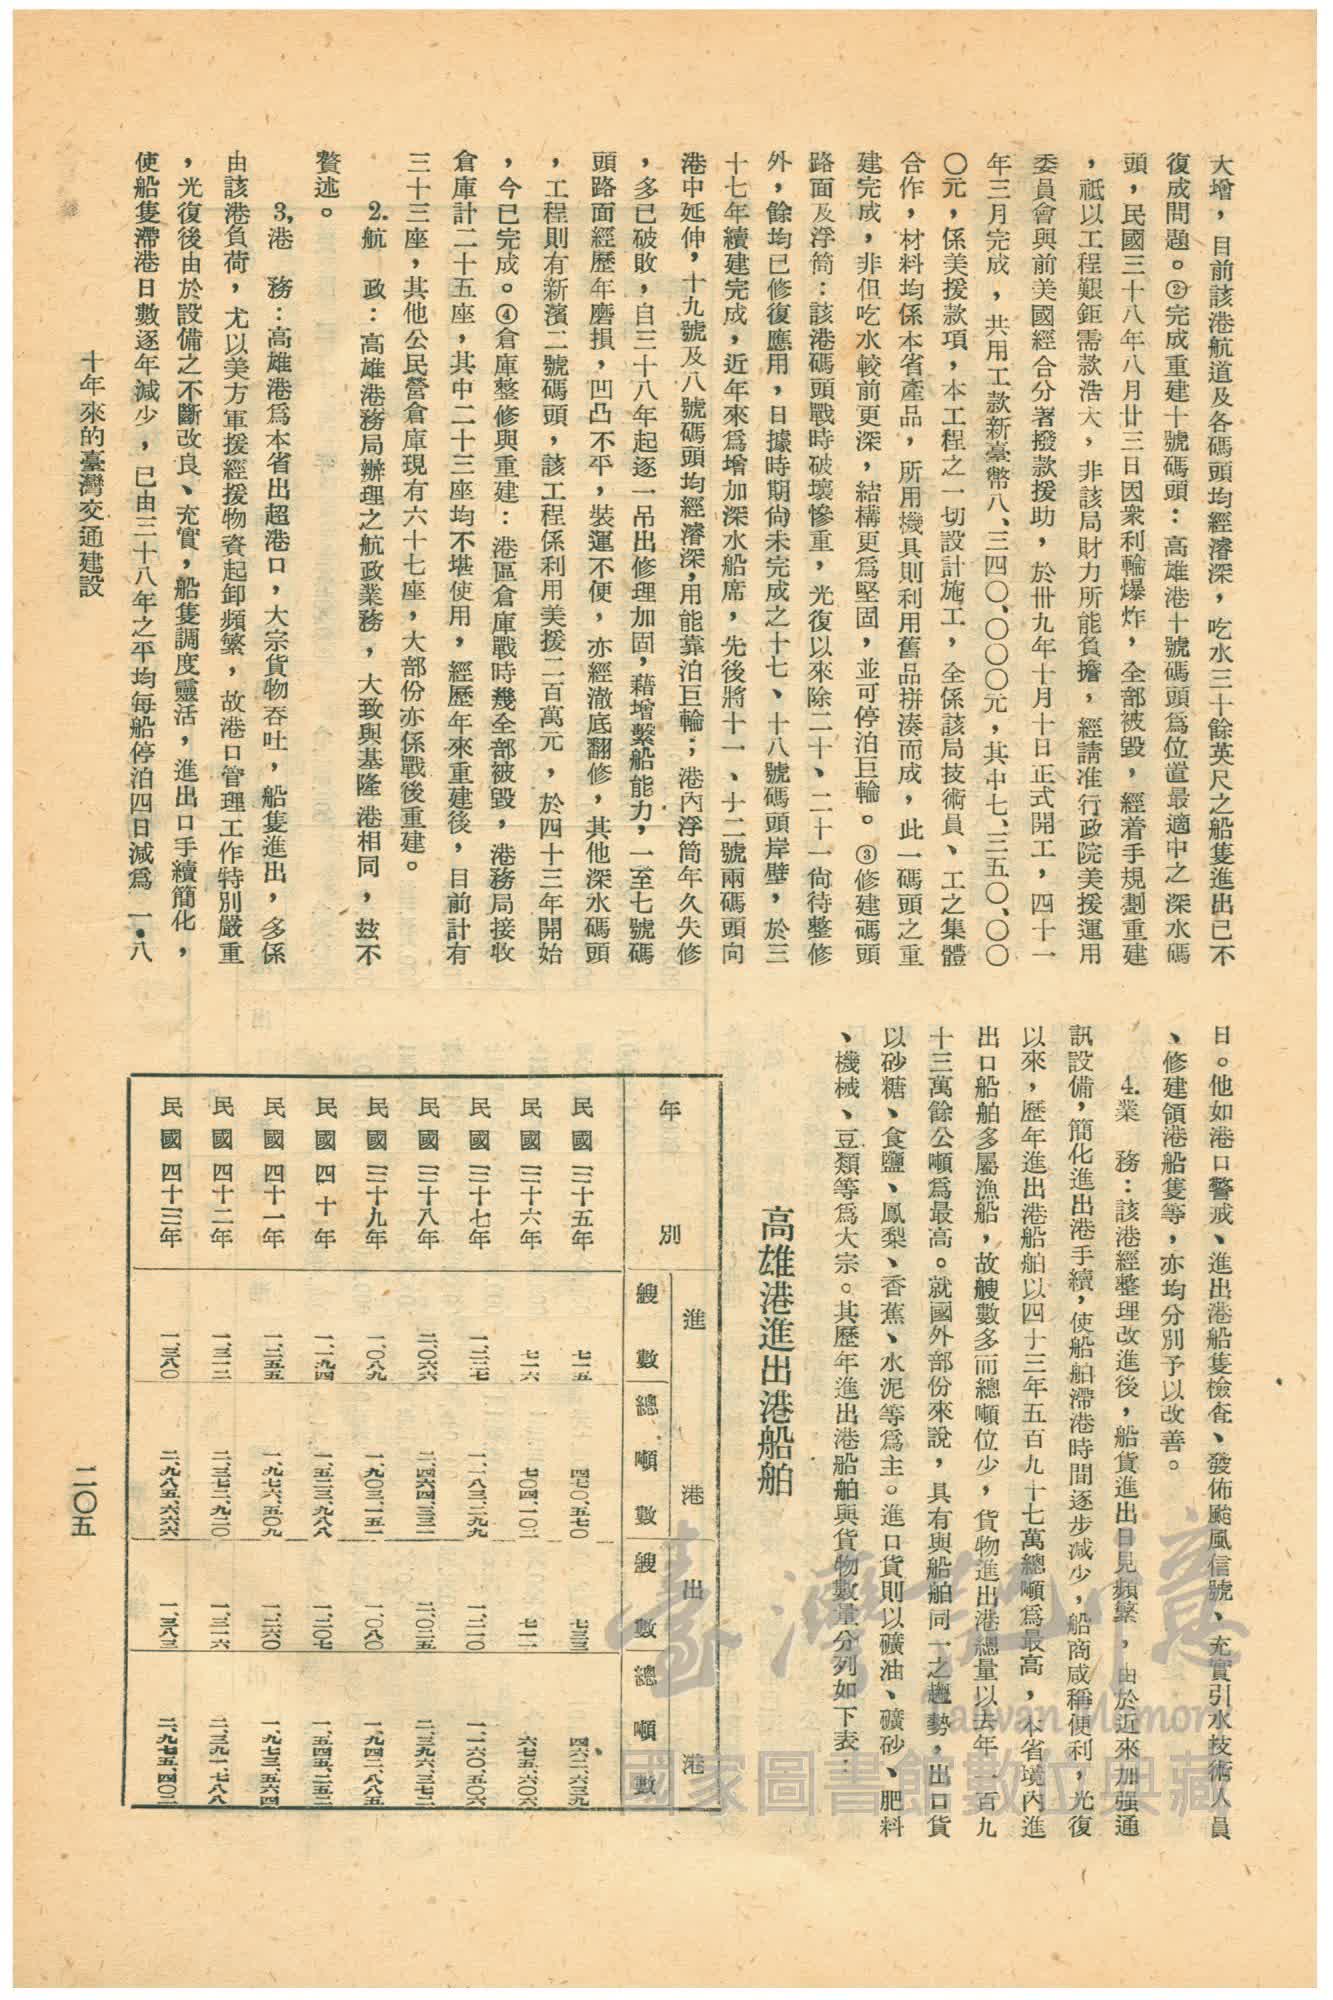 大增，目前該港航道及各碼頭均經濬深，吃水三十餘英尺之船隻進出已不
復成問題。②完成重建十號碼頭：高雄港十號碼頭爲位置最適中之深水碼
頭，民國三十八年八月廿三日因衆利輪爆炸，全部被毀，經着手規劃重建
，祗以工程艱鉅需款浩大，非該局財力所能負擔，經請准行政院美援運用
委員會與前美國經合分署撥款援助，於卅九年十月十日正式開工，四十一
年三月完成，共用工款新臺幣八、三四〇、〇〇〇元，其中七、三五〇、〇〇
〇元，係美援款項，本工程之一切設計施工，全係該局技術員、工之集體
合作，材料均係本省產品，所用機具則利用舊品拼湊而成，此一碼頭之重
建完成，非但吃水較前更深，結構更爲堅固，並可停泊巨輪。③修建碼頭
路面及浮筒：該港碼頭戰時破壞慘重，光復以來除二十、二十一尙待整修
外，餘均已修復應用，日據時期尙未完成之十七、十八號碼頭岸壁，於三
十七年續建完成，近年來爲增加深水船席，先後將十一、十二號兩碼頭向
港中延伸，十九號及八號碼頭均經濬深，用能靠泊巨輪；港內浮筒年久失修
，多已破敗，自三十八年起逐一吊出修理加固，藉增繫船能力，一至七號碼
頭路面經歷年磨損，凹凸不平，裝運不便，亦經澈底翻修，其他深水碼頭
，工程則有新濱二號碼頭，該工程係利用美援二百萬元，於四十三年開始
，今已完成。④倉庫整修與重建：港區倉庫戰時幾全部被毀，港務局接收
倉庫計二十五座，其中二十三座均不堪使用，經歷年來重建後，目前計有
三十三座，其他公民營倉庫現有六十七座，大部份亦係戰後重建。
2.航　政：高雄港務局辦理之航政業務，大致與基隆港相同，玆不
贅述。
3.港　務：高雄港爲本省出超港口，大宗貨物吞吐，船隻進出，多係
由該港負荷，尤以美方軍援經援物資起卸頻繁，故港口管理工作特別嚴重
，光復後由於設備之不斷改良、充實，船隻調度靈活，進出口手續簡化，
使船隻滯港日數逐年減少，已由三十八年之平均每船停泊四日減爲一・八
日。他如港口警戒、進出港船隻檢查、發佈颱風信號、充實引水技術人員
、修建領港船隻等，亦均分別予以改善。
4.業　務：該港經整理改進後，船貨進出日見頻繁，由於近來加强通
訊設備，簡化進出港手續，使船舶滯港時間逐步減少，船商咸稱便利，光復
以來，歷年進出港船舶以四十三年五百九十七萬總噸爲最高，本省境內進
出口船舶多屬漁船，故艘數多而總噸位少，貨物進出港總量以去年一百九
十三萬餘公噸爲最高。就國外部份來說，具有與船舶同一之趨勢，出口貨
以砂糖、食鹽、鳳梨、香蕉、水泥等爲主。進口貨則以礦油、礦砂、肥料
、機械、豆類等爲大宗。其歷年進出港船舶與貨物數量分列如下表：
高雄港進出港船舶
年別　進港　出港
艘數　總噸數　艘數　總噸數
民國三十五年　七一五　四七〇、五七〇　七三三　四六二、六三九
民國三十六年　七一六　七〇四、一〇二　七一一　六七五、六〇六
民國三十七年　一、二二七　一、一八三、二九九　一、二一〇　一、一六〇、五〇六
民國三十八年　二、〇六六　二、四六四、三三一　二、〇二五　二、三九六、三七二
民國三十九年　一、〇八九　一、九〇三、一五一　一、〇八〇　一、九四二、八八五
民國四十年　一、一九四　一、五二三、九八八　一、二〇七　一、五四五、二五二
民國四十一年　一、二五五　一、九七六、五〇九　一、二六〇　一、九七三、五六四
民國四十二年　一、三一二　二、三七二、九二〇　一、三一六　二、三九一、七八八
民國四十三年　一、三八〇　二、九八五、六六六　一、三八三　二、九七五、四〇二
十年來的臺灣交通建設
二〇五
臺灣記憶
Taiwan Memory
國家圖書館數位典藏